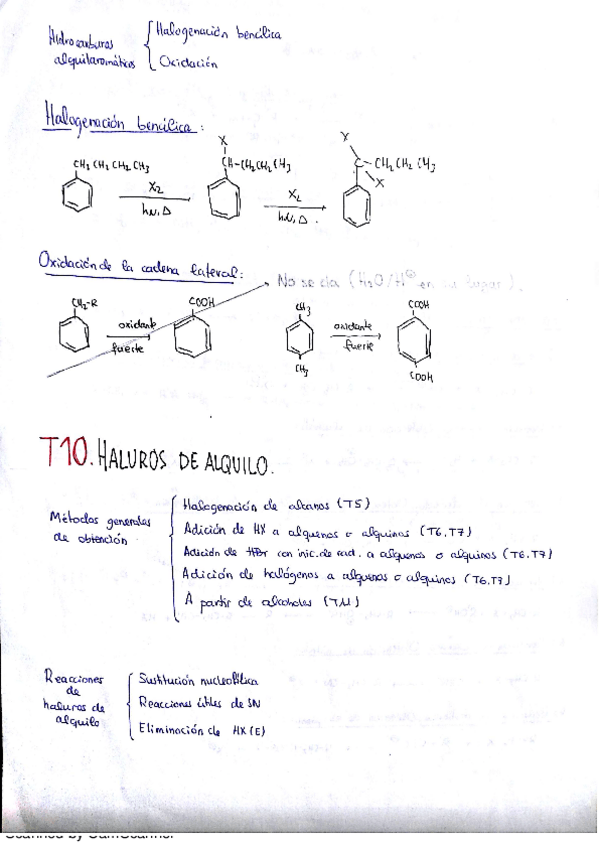 Hidrocarburos alquilaromáticos
Halogenación bencílica
Oxidación
Halogenación bencílica:
CH2 CH2 CH2 CH3
X2
hν, Δ
X
CH-CH2CH2CH3
X2
hν, Δ.
X
C-CH2CH2CH3
X
Oxidación de la cadena lateral:
No se da (H2O/H⊕ en su lugar).
CH2-R
oxidante
fuerte
COOH
CH3
CH3
oxidante
fuerte
COOH
COOH
T10. HALUROS DE ALQUILO.
Métodos generales
de obtención
Halogenación de alcanos (T5)
Adición de HX a alquenos o alquinos (T6, T7)
Adición de HBr con inic. de rad. a alquenos o alquinos (T6, T7)
Adición de halógenos a alquenos o alquinos (T6, T7)
A partir de alcoholes (T11)
Reacciones
de
haluros de
alquilo
Sustitución nucleofílica
Reacciones útiles de SN
Eliminación de HX (E)